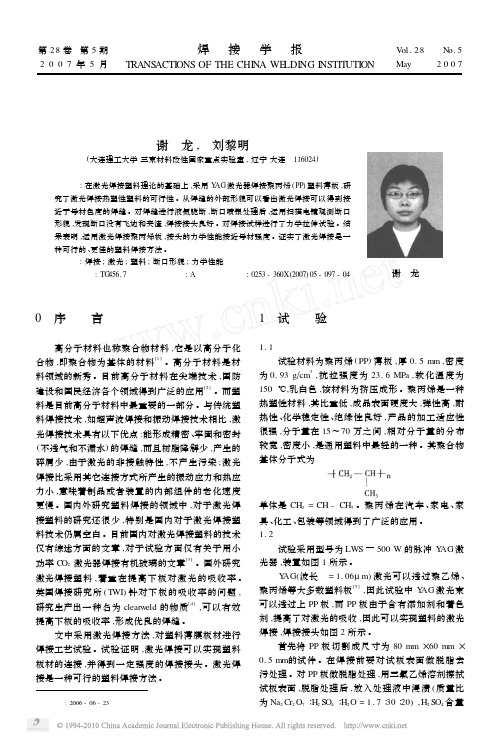 第28卷 第5期
2007年5月
焊 接 学 报
TRANSACTIONS OF THE CHINA WELDING INSTITUTION
Vol.28 No.5
May 2007
谢 龙, 刘黎明
(大连理工大学 三束材料改性国家重点实验室,辽宁 大连 116024)
:在激光焊接塑料理论的基础上,采用YAG激光器焊接聚丙烯(PP)塑料薄板,研
究了激光焊接热塑性塑料的可行性。从焊缝的外部形貌可以看出激光焊接可以得到接
近于母材色度的焊缝。对焊缝进行液氮脆断,断口喷银处理后,运用扫描电镜观测断口
形貌,发现断口没有飞边和夹渣,焊接接头良好。对焊接试样进行了力学拉伸试验。结
果表明,运用激光焊接聚丙烯板,接头的力学性能接近母材强度。证实了激光焊接是一
种可行的、更佳的塑料焊接方法。
:焊接;激光;塑料;断口形貌;力学性能
:TG456.7 :A :0253-360X(2007)05-097-04
谢 龙
0 序 言
高分子材料也称聚合物材料,它是以高分子化
合物,即聚合物为基体的材料[1]。高分子材料是材
料领域的新秀。目前高分子材料在尖端技术,国防
建设和国民经济各个领域得到广泛的应用[2]。而塑
料是目前高分子材料中最重要的一部分。与传统塑
料焊接技术,如超声波焊接和振动焊接技术相比,激
光焊接技术具有以下优点:能形成精密、牢固和密封
(不透气和不漏水)的焊缝,而且树脂降解少,产生的
碎屑少,由于激光的非接触特性,不产生污染;激光
焊接比采用其它连接方式所产生的振动应力和热应
力小,意味着制品或者装置的内部组件的老化速度
更慢。国内外研究塑料焊接的领域中,对于激光焊
接塑料的研究还很少,特别是国内对于激光焊接塑
料技术仍属空白。目前国内对激光焊接塑料的技术
仅有综述方面的文章,对于试验方面仅有关于用小
功率CO2激光器焊接有机玻璃的文章[3]。国外研究
激光焊接塑料,着重在提高下板对激光的吸收率。
英国焊接研究所(TWI)针对下板的吸收率的问题,
研究生产出一种名为clearweld的物质[4],可以有效
提高下板的吸收率,形成优良的焊缝。
文中采用激光焊接方法,对塑料薄膜板材进行
焊接工艺试验。试验证明,激光焊接可以实现塑料
板材的连接,并得到一定强度的焊接接头。激光焊
接是一种可行的塑料焊接方法。
:2006-06-23
1 试 验
1.1
试验材料为聚丙烯(PP)薄板,厚0.5 mm,密度
为0.93 g/cm3,抗拉强度为23.6 MPa,软化温度为
150 ℃,乳白色,该材料为挤压成形。聚丙烯是一种
热塑性材料,其比重低,成品表面硬度大,弹性高,耐
热性、化学稳定性、绝缘性良好,产品的加工适应性
很强,分子量在15~70万之间,相对分子量的分布
较宽,密度小,是通用塑料中最轻的一种。其聚合物
基体分子式为
CH2—CH n
CH3
单体是CH2=CH-CH3。聚丙烯在汽车、家电、家
具、化工、包装等领域得到了广泛的应用。
1.2
试验采用型号为LWS—500 W的脉冲YAG激
光器,装置如图1所示。
YAG(波长 =1.06μm)激光可以透过聚乙烯、
聚丙烯等大多数塑料板[5],因此试验中YAG激光束
可以透过上PP板,而PP板由于含有添加剂和着色
剂,提高了对激光的吸收,因此可以实现塑料的激光
焊接,焊接接头如图2所示。
首先将PP板切割成尺寸为80 mm×60 mm×
0.5 mm的试件。在焊接前要对试板表面做脱脂去
污处理。对PP板做脱脂处理,用三氯乙烯溶剂擦拭
试板表面,脱脂处理后,放入处理液中浸渍(质量比
为Na2Cr2O7 :H2SO4 :H2O=1.7:30:20),H2SO4含量
© 1994-2010 China Academic Journal Electronic Publishing House. All rights reserved. http://www.cnki.net
www.cnki.net